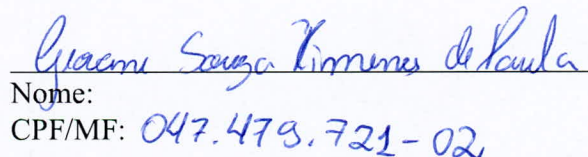 Geacine Souza Ximenes de Paula
Nome:
CPF/MF: 047.479.721-02